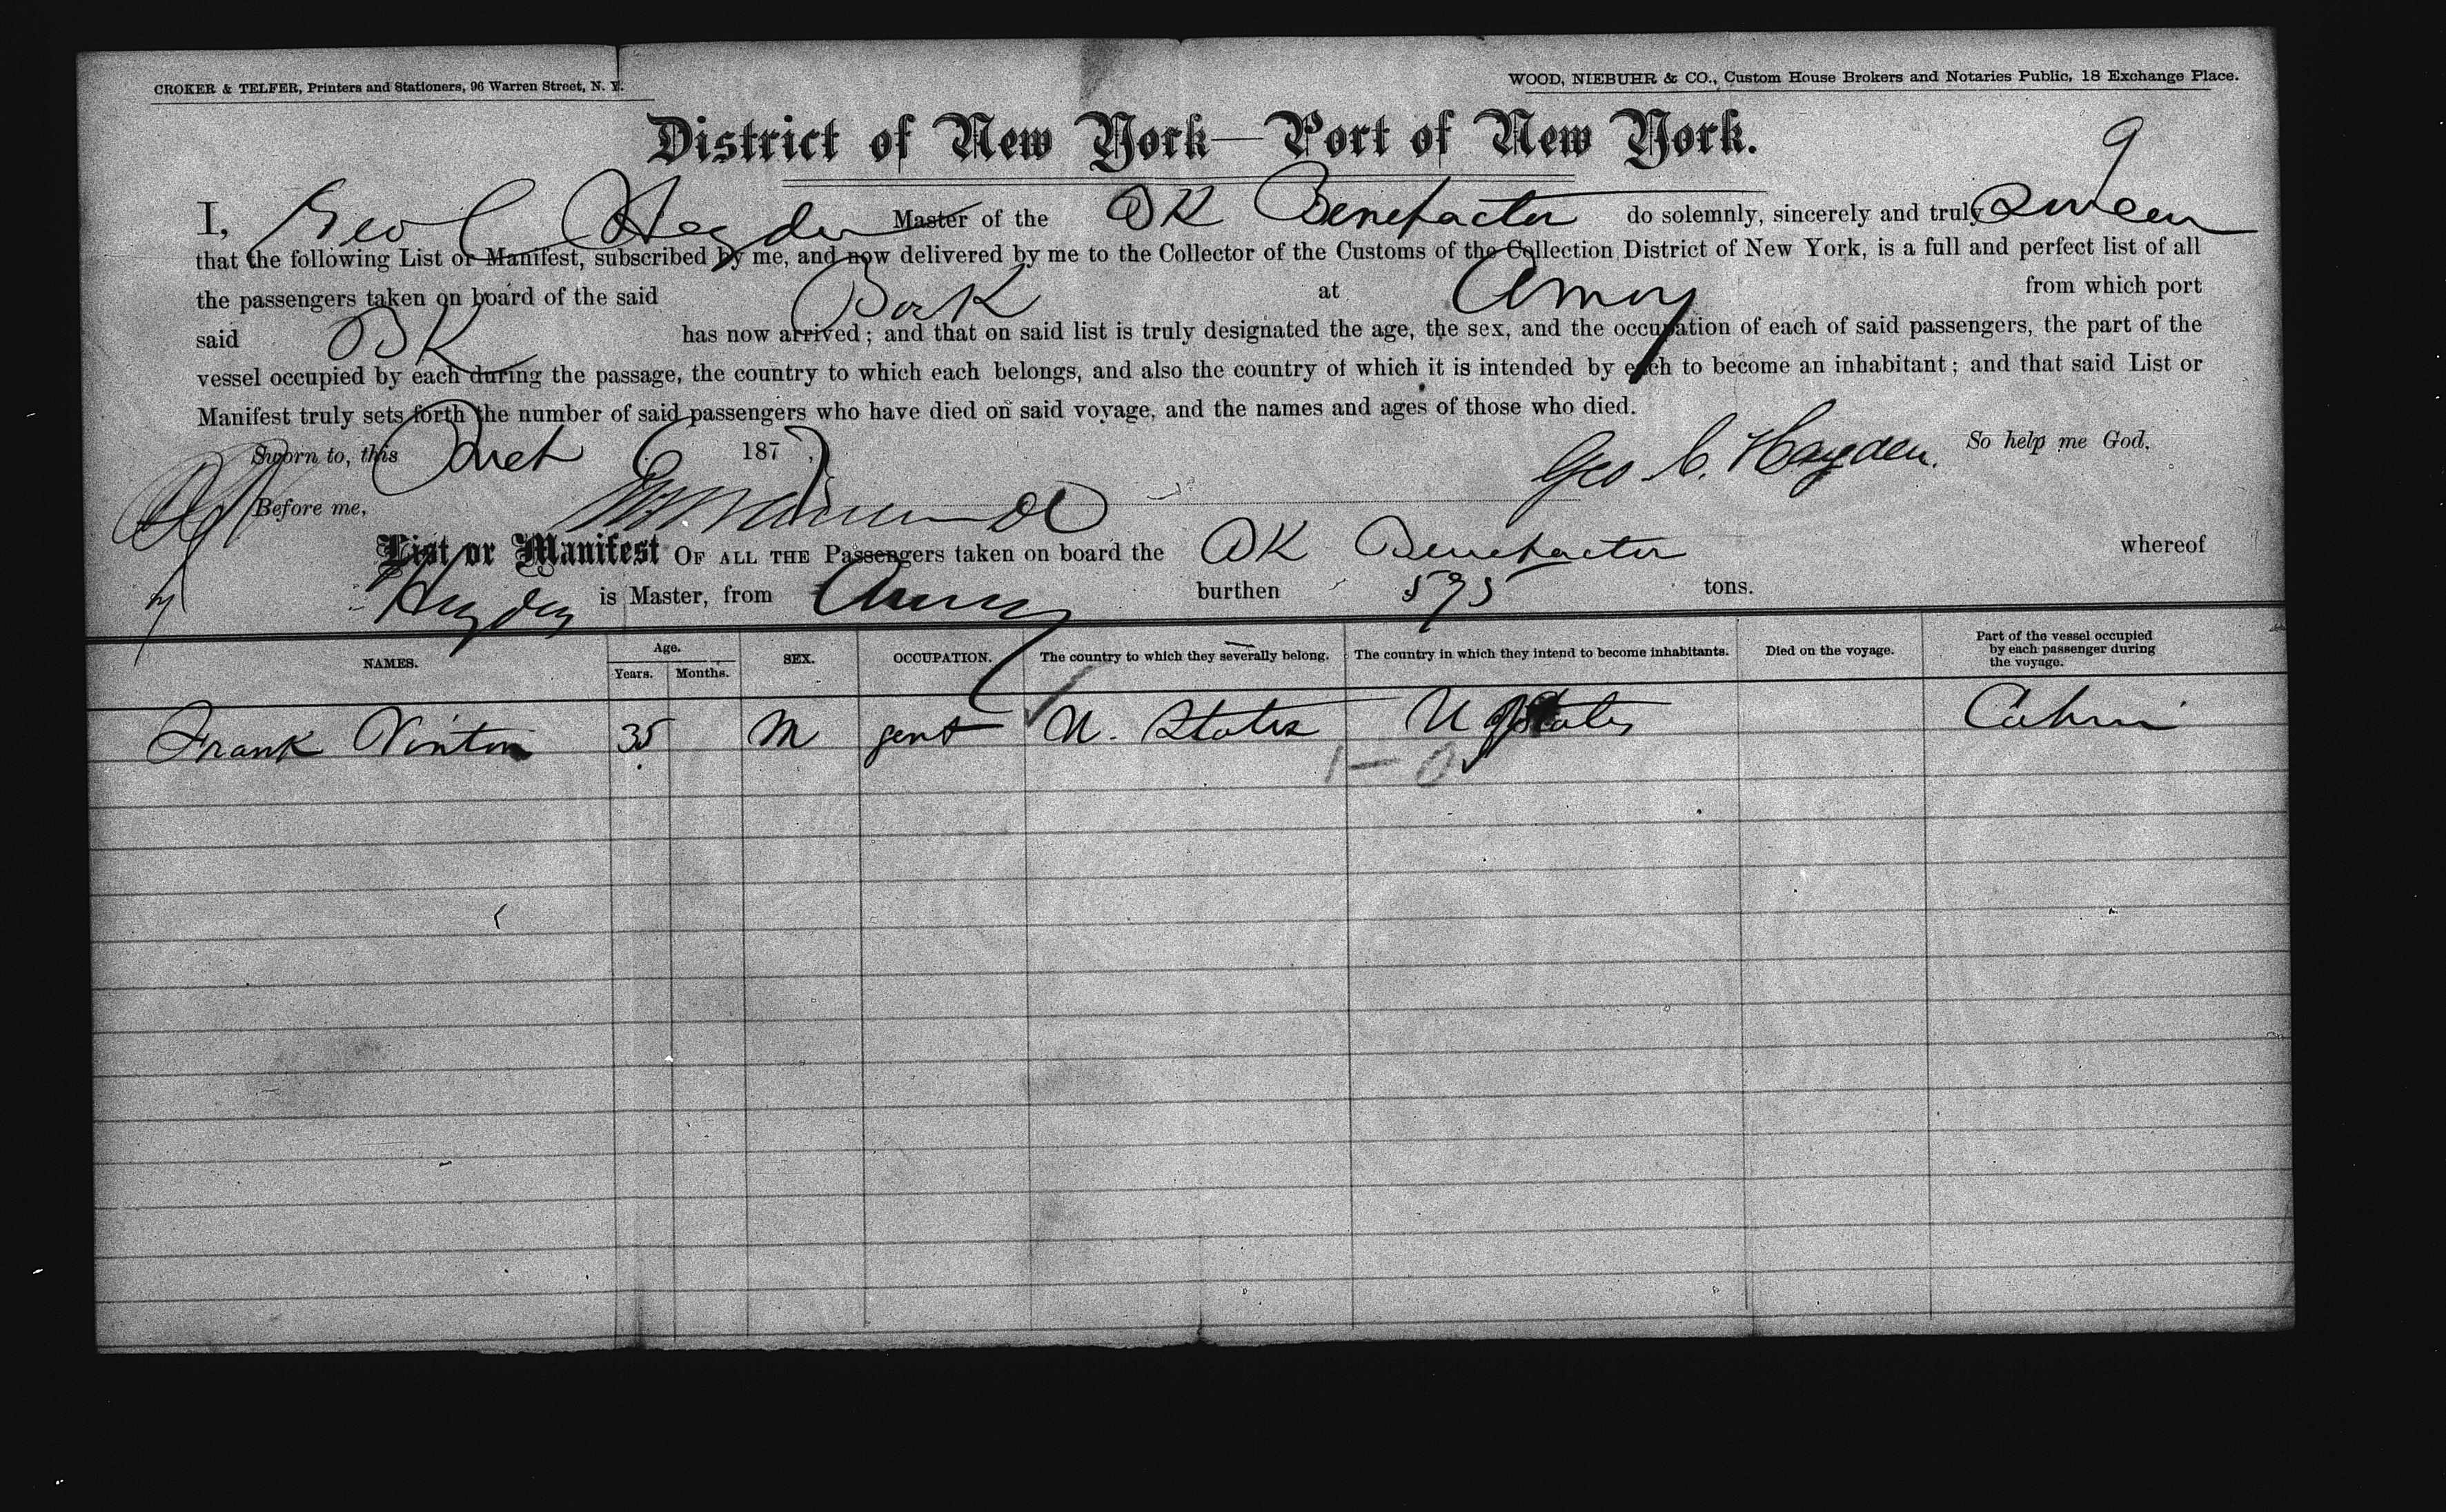 CROKER & TELFER, Printers and Stationers, 96 Warren Street, N. Y.
WOOD, NIEBUHR & CO., Custom House Brokers and Notaries Public, 18 Exchange Place.
9
District of New York—Port of New York.
I, Geo C Hayden Master of the BK Benefactor do solemnly, sincerely and truly Swear
that the following List or Manifest, subscribed by me, and now delivered by me to the Collector of the Customs of the Collection District of New York, is a full and perfect list of all
the passengers taken on board of the said Bark at Amoy from which port
said BK has now arrived; and that on said list is truly designated the age, the sex, and the occupation of each of said passengers, the part of the
vessel occupied by each during the passage, the country to which each belongs, and also the country of which it is intended by each to become an inhabitant; and that said List or
Manifest truly sets forth the number of said passengers who have died on said voyage, and the names and ages of those who died.
Sworn to, this 187 So help me God,
Geo C. Hayden.
Before me,
List or Manifest OF ALL THE Passengers taken on board the BK Benefactor whereof
Hayden is Master, from Amoy burthen 595 tons.
NAMES. Age. Years. Months. SEX. OCCUPATION. The country to which they severally belong. The country in which they intend to become inhabitants. Died on the voyage. Part of the vessel occupied by each passenger during the voyage.
Frank Vinton 35 M gent U. States U States Cabin
1—0